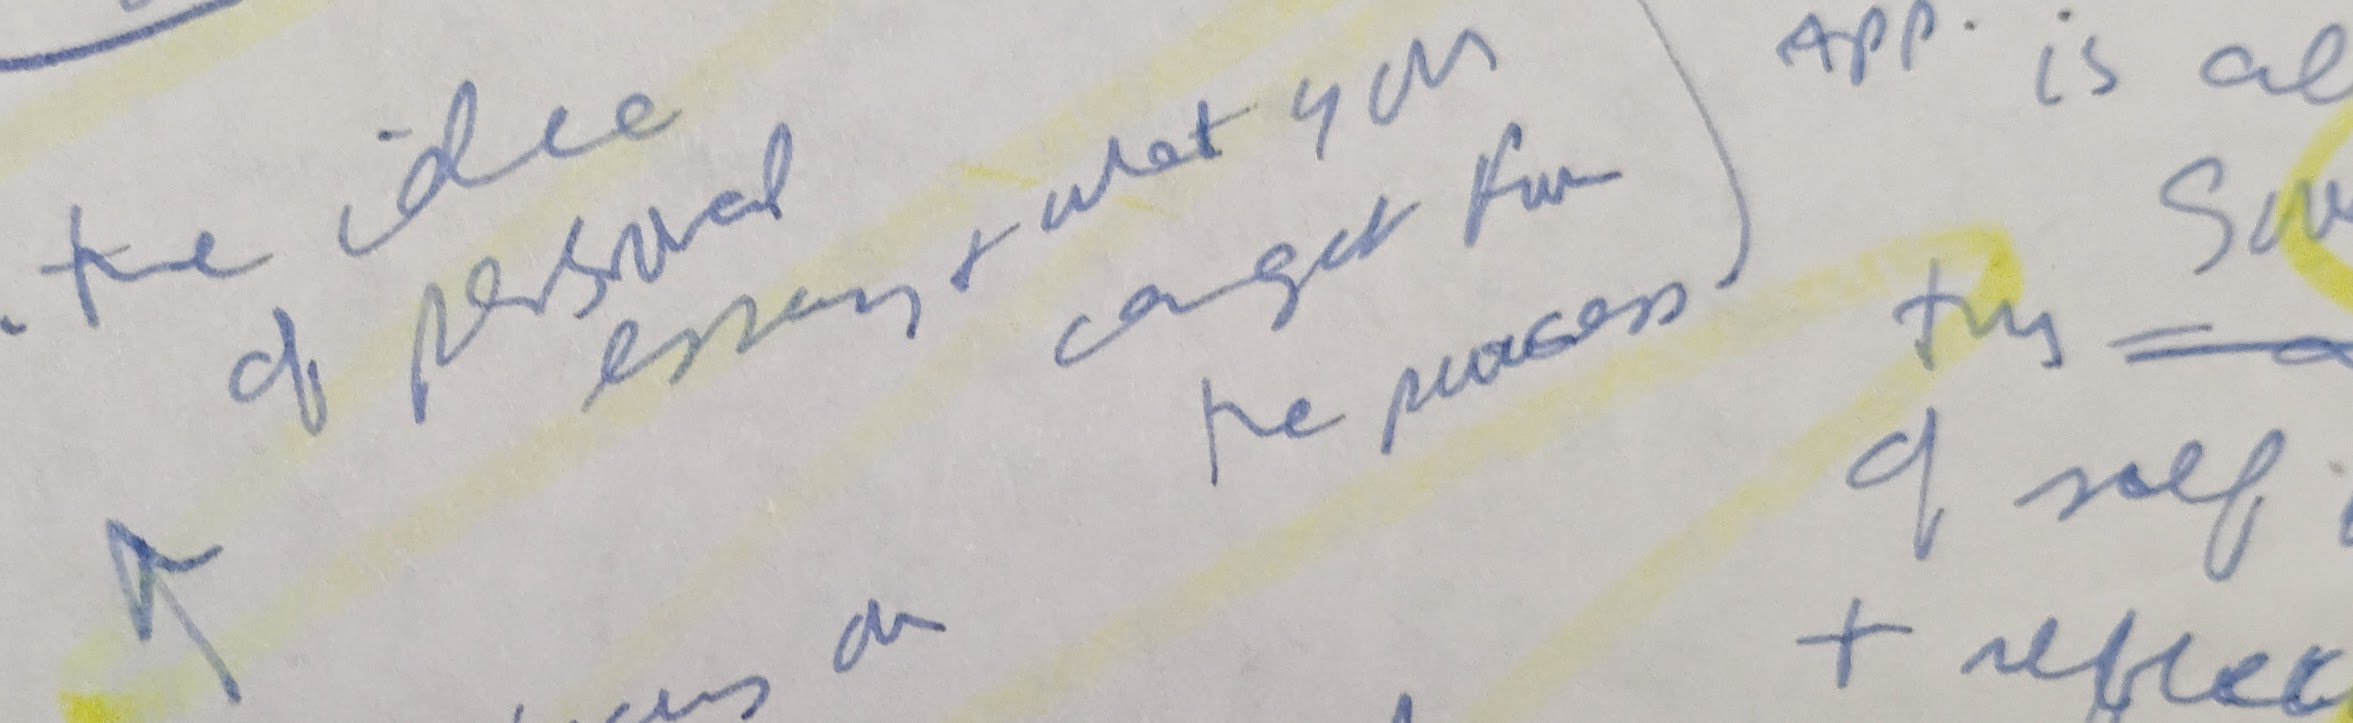 the idea
of personal
essay + what you
can get from
the process
on
App. is al
this =
of self
+ reflec